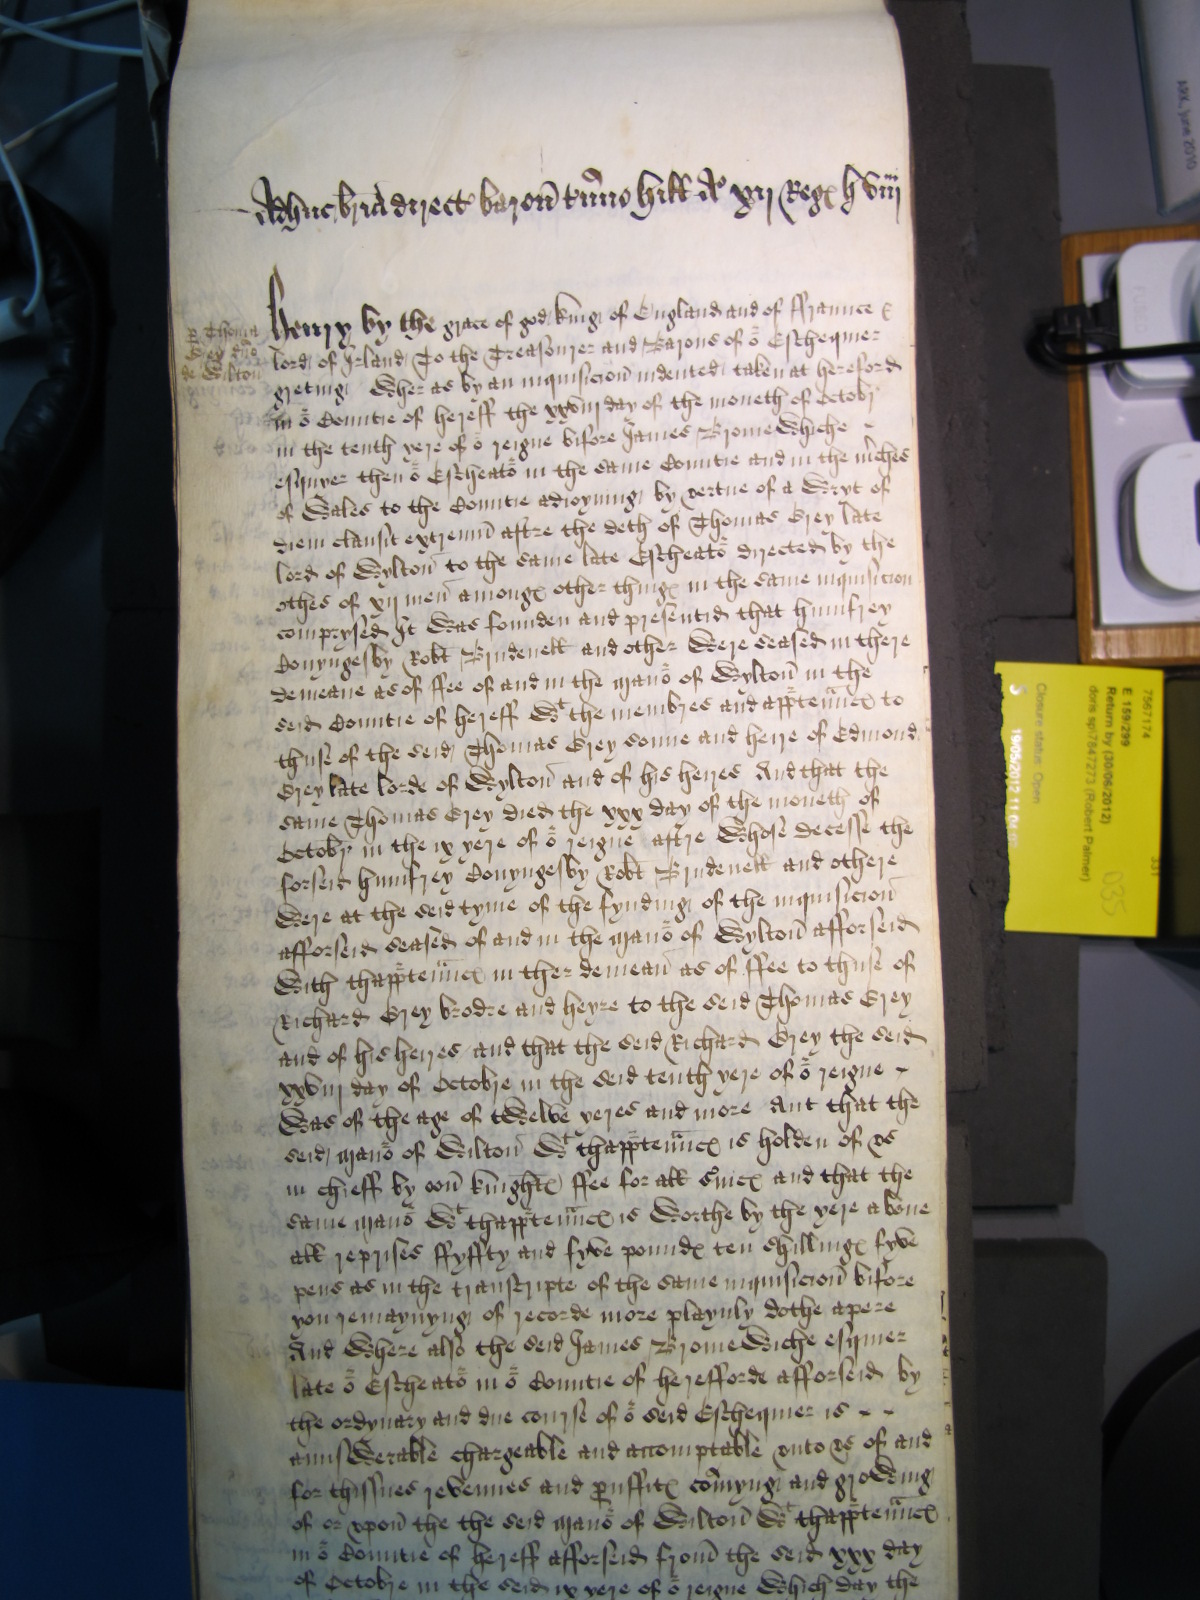 Adhuc bria direct baron tmino hill Ao xij Reg h viij
p Thoma
Wilton
Henry by the grace of god king of England and of ffraunce &
lord of Irland To the Treasourer and Barons of or Eschequier
greting Wher as by an inquisicion indented taken at hereford
in or Countie of hereff the xxviij day of the moneth of Octobr
in the tenth yere of or reigne bifore James Bromewhiche
esquyer then or Escheator in the same Countie and in the mches
of Wales to the Countie adioynyng by vertue of a Wryt of
diem clausit extremu aftre the deth of Thomas Grey late
lord of Wylton to the same late Escheator directed by the
othes of xij men among other thing in the same inquisicion
comprysed It was founden and presentid that humfrey
Conyngesby Robt Brudenell and other were seased in there
demeane as of ffee of and in the manor of Wylton in the
seid Countie of hereff wt the membres and apptennc to
thuse of the seid Thomas Grey sonne and heire of Edmond
Grey late lorde of Wylton and of his heires And that the
same Thomas Grey died the xxx day of the moneth of
Octobr in the ix yere of or reigne aftre whose decesse the
forseid humfrey Conyngesby Robt Brudenell and othere
were at the seid tyme of the fynding of the inquisicion
afforseid seased of and in the manor of Wylton afforseid
with thapptennc in ther demean as of ffee to thuse of
Richard Grey brodre and heyre to the seid Thomas Grey
and of his heires and that the seid Richard Grey the seid
xxviij day of Octobre in the seid tenth yere of or reigne
was of the age of twelve yeres and more Ant that the
seid manor of Wilton wt thapptennc is holden of vs
in chieff by oon knight ffee for all suic and that the
same manor wt thapptennc is worthe by the yere above
all reprises ffyffty and fyve pound ten shilling fyve
pens as in the transcripte of the same inquisicion bifore
you remaynyng of recorde more playnly dothe apere
And where also the seid James Bromewiche esquier
late or Escheator in or Countie of herefforde afforseid by
the ordynary and due course of or seid Eschequier is
annswerable chargeable and accomptable vnto vs of and
for thissues revenues and pruffit comyng and growing
of or vpon the the seid manor of Wilton wt thapptennc
in or Countie of hereff afforseid from the seid xxx day
of Octobre in the seid ix yere of or reigne which day the
7567174
E 159/299
Return by (30/06/2012)
doris sp\7847273 (Robert Palmer)
Closure status: Open
035